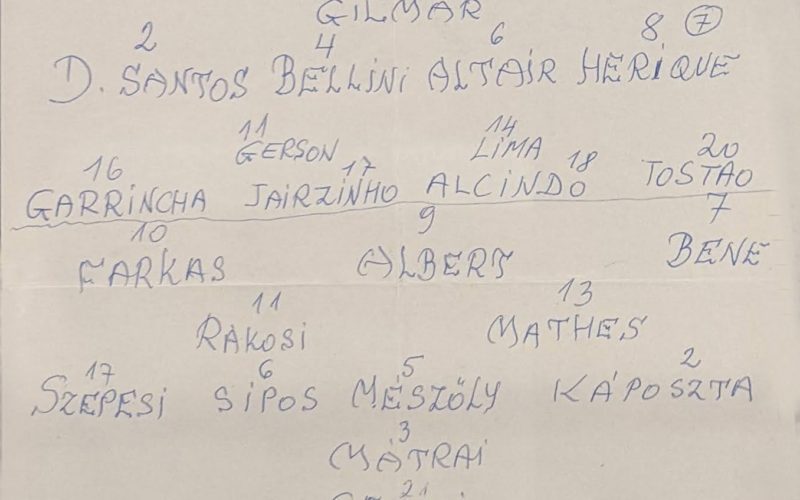 GILMAR
2 4 6 8 7
D. SANTOS BELLINI ALTAIR HERIQUE
11 14
GERSON LIMA
16 17 18 20
GARRINCHA JAIRZINHO ALCINDO TOSTAO
10 9 7
FARKAS ALBERT BENE
11 13
RÁKOSI MATHES
17 6 5 2
SZEPESI SÍPOS MÉSZÖLY KÁPOSZTA
3
MÁTRAI
21